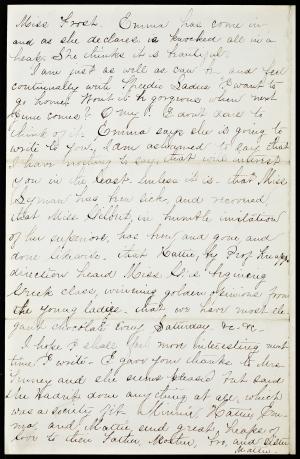 Miss Frost. Emma has come in
and as she declares is knocked all in a
heap. She thinks it is beautiful.
I am just as well as can be and feel
continually with Ladies "I want to
go home". Wont it be gorgeous when next
June comes? O my! I dont dare to
think of it. Emma says she is going to
write to you, I am ashamed to say that
I have nothing to say, that will interest
you in the least unless it is - that Miss
Lyman has been sick, and recovered,
that Miss Gilbert, in humble imitation
of her superiors, has been and gone and
done likewise - that Hattie, by Prof
direction heard Miss G's beginning
Greek class, winning golden opinions from
the young ladies, that we have most
chocolate every Saturday &c &c -
I hope I shall be more interesting next
time I write - I gave your thanks to Mrs
and she seems pleased but said
she hadn't done anything at age, which
was a society fib. Minnie, Hattie, Em-
ma, and Mattie send great heaps of
love to thee Father, Mother, Bro, and Sister
Mattie.